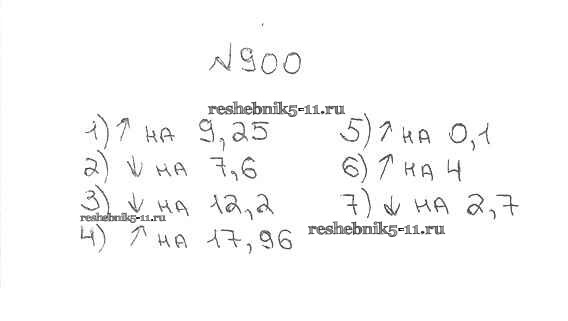 №900
reshebnik5-11.ru
1) ↑ на 9,25
2) ↓ на 7,6
3) ↓ на 12,2
reshebnik5-11.ru
4) ↑ на 17,96
5) ↑ на 0,1
6) ↑ на 4
7) ↓ на 2,7
reshebnik5-11.ru